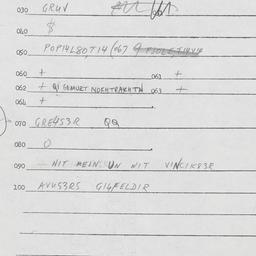 030 GRUV
040 $
050 POP14L80,T14 (067 9
060 + 061 +
062 + Q1 GEMUET NOEHTRAKHTN 063 +
064 +
070 GRE4S3R QQ
080 O
090 HIT MEIN UN NIT VINCIK83R
100 AVUS3RS GI4FELDIR